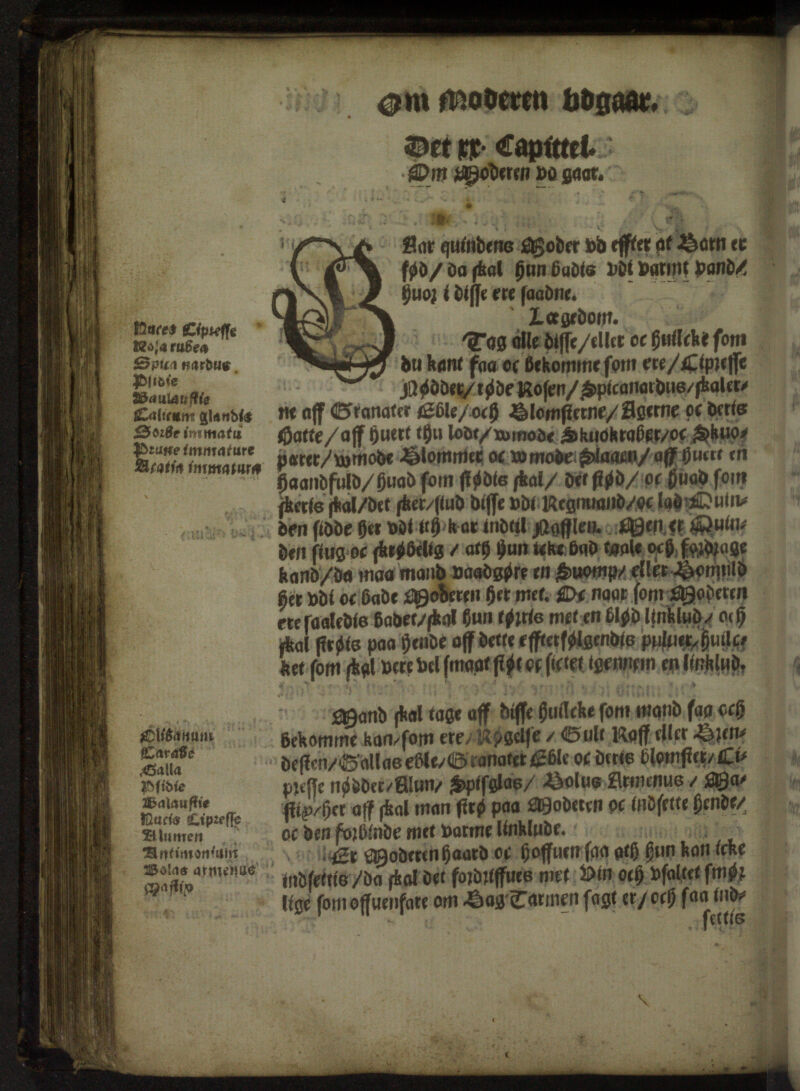 Om Moderen vdgaar.
Det xx. Capittel.
Om Moderen vd gaat.
Nar quindens Moder vd effter at Barn er
fød/ da skal hun badis vdi varmt vand/
huor i disse ere saadne.
Lægedom.
Tag alle disse/eller oc huilcke som
du kant faa oc bekomme som ere/Cipresse
Nødder/røde Rosen/Spicanardus/skaler-
ne aff Granater Eble/och Blomsterne/Agerne oc deris
Hatte/aff huert thu lodt/womode Skuokraber/oc Skuo-
pærer/womode Blommer oc womode Slaaen/aff huert en
haandfuld/huad som stødis skal/ det stød/ oc huad som
skeris skal/det sker/siud disse vdi Regnuand/oc lad Quin-
den sidde her vdi til kar indtil Nafflen. Men er Quin-
den siug oc skrøbelig / ath hun icke bad taale och fordrage
kand/da maa mand vaadgøre en Suomp/ eller Bomuld
her vdi oc bade Moderen her met. Oc naar som Moderen
ere saaledis badet/skal hun tørris met en blød linklud/ och
skal strøis paa hende aff dette effterfølgendis puluer/huilc-
ket som skal vere vel smaat støt oc sictet igennem en linklud.
Mand skal tage aff disse huilcke som mand faa och
bekomme kan/som ere/ Røgelse / Gult Raff eller Bren-
desten/Gallas eble/Granater Eble oc deris blomster/Ci-
presse nødder/Alun/ Spitsglas/ Bolus Armenus / Ma-
stix/her aff skal man strø paa Moderen oc indsette hende/
oc den forbinde met varme linklude.
Er Moderen haard oc hoffuen saa ath hun kan icke
indsettis/da skal det fordriffues met Vin och vsaltet smør
lige som offuenfare om Bag Tarmen sagt er/och saa ind-
settis
Nuces Cipresse
Rosa rubea
Spica nardus
Psidie
Balaustie
Calicum glandis
Sorbe immatu
Prune immature
Acatia immatura
Olibanum
Carabe
Galla
Psidie
Balaustie
Nucis Cipresse
Alumen
Antimonium
Bolas armenus
Mastix